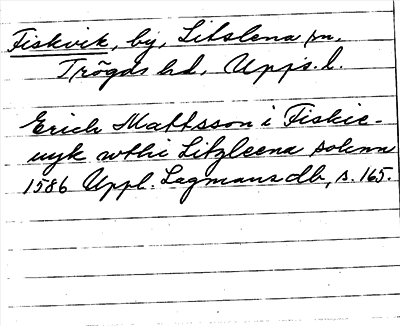 Fiskvik, by, Litslena sn.
Trögds hd, Upps. l.
Erich Mattsson i Fiskie-
uyk wthi Litzleena soknn
1586 Uppl. Lagmansdb, s. 165.